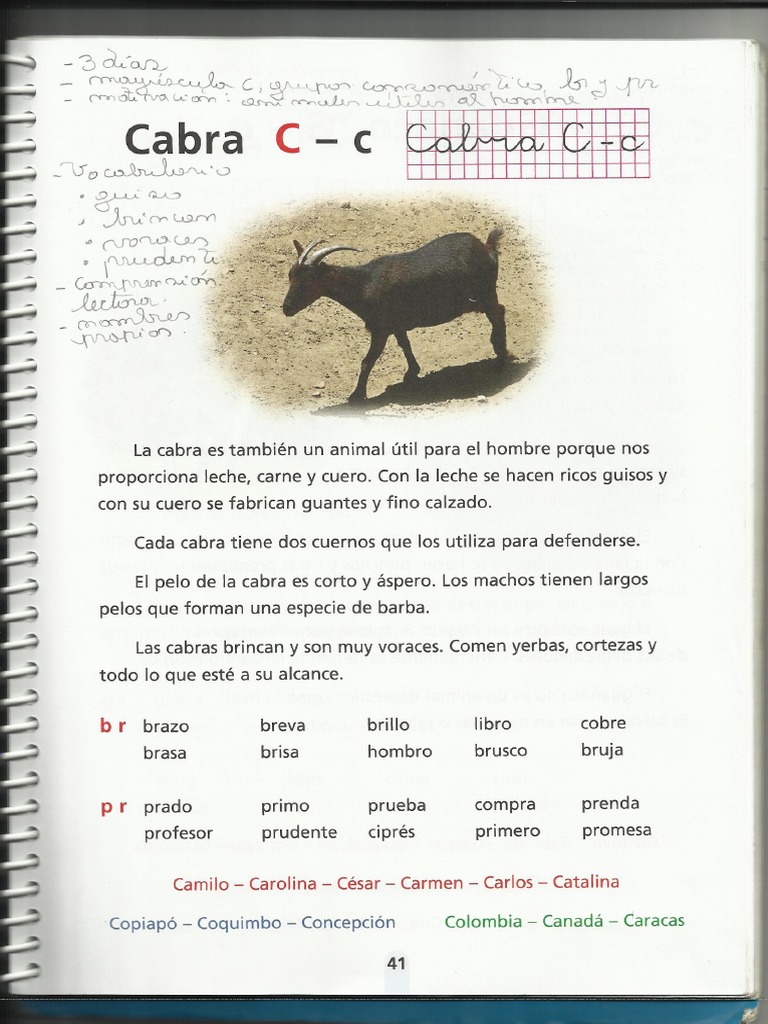 - 3 días
- mayúscula C, grupos consonántico, br y pr
- motivación: animales útiles al hombre.
Cabra C – c Cabra C - c
- Vocabulario
• guiso
• brincan
• voraces
• prudente
- comprensión
lectora.
- nombres
propios.
La cabra es también un animal útil para el hombre porque nos
proporciona leche, carne y cuero. Con la leche se hacen ricos guisos y
con su cuero se fabrican guantes y fino calzado.
Cada cabra tiene dos cuernos que los utiliza para defenderse.
El pelo de la cabra es corto y áspero. Los machos tienen largos
pelos que forman una especie de barba.
Las cabras brincan y son muy voraces. Comen yerbas, cortezas y
todo lo que esté a su alcance.
br brazo breva brillo libro cobre
brasa brisa hombro brusco bruja
pr prado primo prueba compra prenda
profesor prudente ciprés primero promesa
Camilo – Carolina – César – Carmen – Carlos – Catalina
Copiapó – Coquimbo – Concepción Colombia – Canadá – Caracas
41